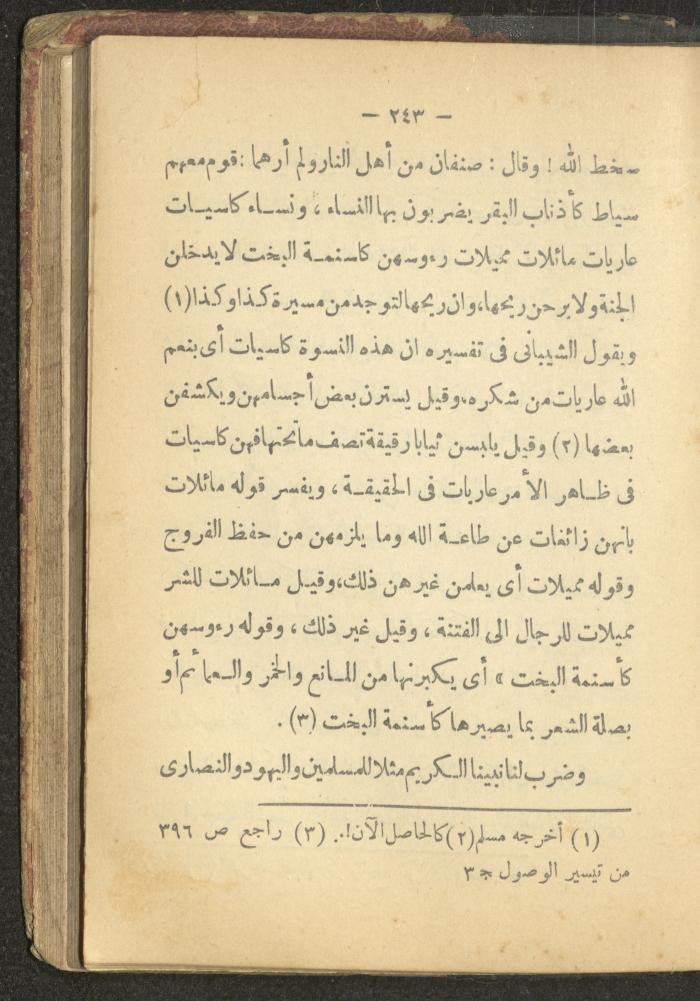 — ٢٤٣ —
سخط الله ! وقال : صنفان من أهل النار ولم أرهما : قوم معهم
سياط كأذناب البقر يضربون بها النساء ، ونساء كاسيات
عاريات مائلات مميلات رءوسهن كاسنمة البخت لا يدخلن
الجنة ولا يرحن ريحها، وان ريحها لتوجد من مسيرة كذا وكذا (١)
ويقول الشيباني في تفسيره ان هذه النسوة كاسيات أى بنعم
الله عاريات من شكره، وقيل يسترن بعض أجسامهن ويكشفن
بعضها (٢) وقيل يلبسن ثيابا رقيقة تصف ما تحتها فهن كاسيات
فى ظاهر الأمر عاريات فى الحقيقة ، ويفسر قوله مائلات
بانهن زائغات عن طاعة الله وما يلزمهن من حفظ الفروج
وقوله مميلات أى يعلمن غيرهن ذلك، وقيل مائلات للشر
مميلات للرجال الى الفتنة ، وقيل غير ذلك ، وقوله رءوسهن
كأسنمة البخت » أى يكبرنها من المانع والخمر والعمائم أو
بصلة الشعر بما يصيرها كأسنمة البخت (٣) .
وضرب لنا نبينا الكريم مثلا للمسلمين واليهود والنصارى
(١) أخرجه مسلم (٢) كالحاصل الآن!. (٣) راجع ص ٣٩٦
من تيسير الوصول ج ٣